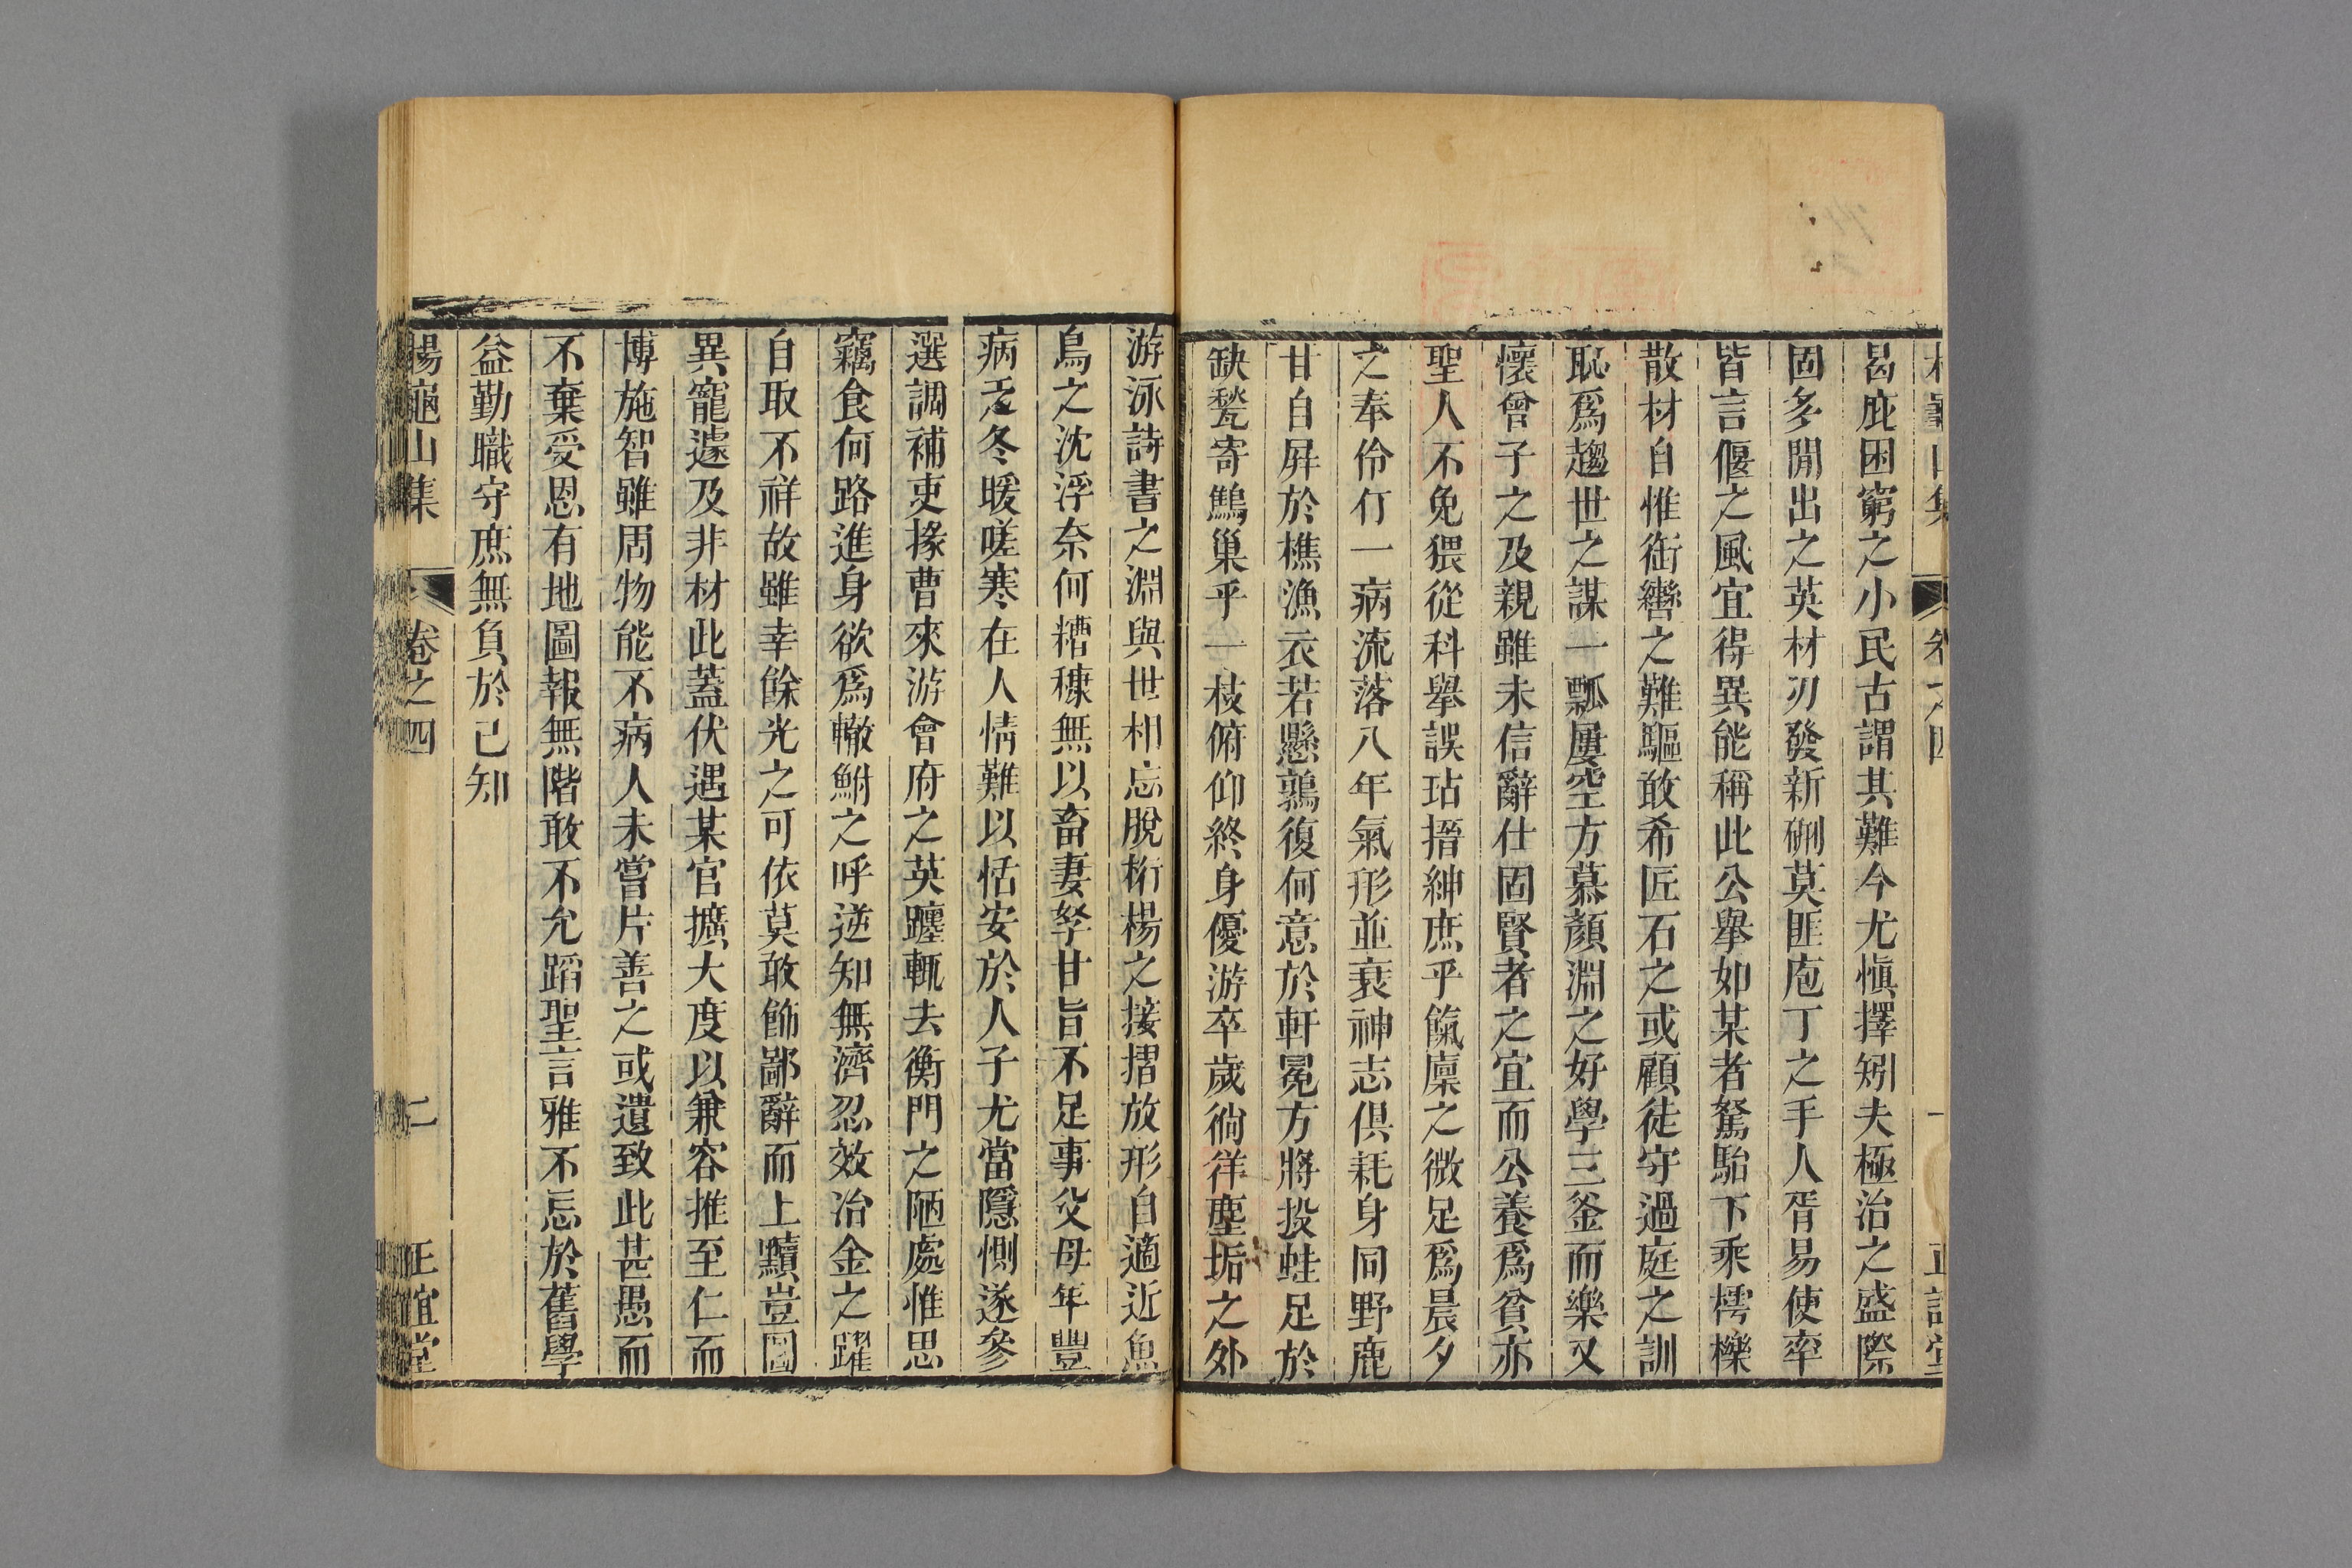 曷庇困窮之小民古謂其難今尤慎擇矧夫極治之盛際
固多閒出之英材刃發新硎莫匪庖丁之手人胥易使率
皆言偃之風宜得異能稱此公舉如某者駑駘下乘樗櫟
散材自惟銜轡之難驅敢希匠石之或顧徒守過庭之訓
恥爲趨世之謀一瓢屢空方慕顏淵之好學三釜而樂又
懷曾子之及親雖未信辭仕固賢者之宜而公養爲貧亦
聖人不免猥從科舉誤玷搢紳庶乎餼廩之微足爲晨夕
之奉伶仃一病流落八年氣形並衰神志俱耗身同野鹿
甘自屏於樵漁衣若懸鶉復何意於軒冕方將投蛙足於
缺甃寄鷦巢乎一枝俯仰終身優游卒歲徜徉塵垢之外
游泳詩書之淵與世相忘脫桁楊之接摺放形自適近魚
鳥之沈浮奈何糟糠無以畜妻孥甘旨不足事父母年豐
病乏冬暖嗟寒在人情難以恬安於人子尤當隱惻遂參
選調補吏掾曹來游會府之英躔輒去衡門之陋處惟思
竊食何路進身欲爲轍鮒之呼逆知無濟忍效冶金之躍
自取不祥故雖幸餘光之可依莫敢飾鄙辭而上黷豈圖
異寵遽及非材此蓋伏遇某官擴大度以兼容推至仁而
博施智雖周物能不病人未嘗片善之或遺致此甚愚而
不棄受恩有地圖報無階敢不允蹈聖言雅不忘於舊學
益勤職守庶無負於己知
楊龜山集 卷之四 二 正誼堂